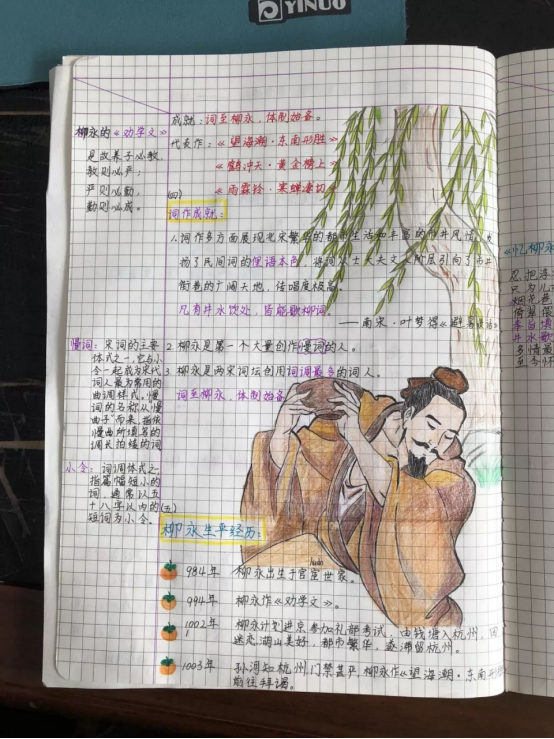 YINUO
柳永的《劝学文》
是故养子必教，
教则必严；
严则必勤，
勤则必成。
成就：词至柳永，体制始备。
代表作：《望海潮·东南形胜》
《鹤冲天·黄金榜上》
(四)
《雨霖铃·寒蝉凄切》
词作成就：
1.词作多方面展现北宋繁华的都市生活和丰富的市井风情，发
扬了民间词的俚语本色，将词从士大夫文人阶层引向了市井
街巷的广阔天地，传唱度极高。
凡有井水饮处，皆能歌柳词。
——南宋·叶梦得《避暑录话》
2.柳永是第一个大量创作慢词的人。
3.柳永是两宋词坛创用词调最多的词人。
词至柳永，体制始备
慢词：宋词的主要
体式之一，它与小
令一起成为宋代
词人最为常用的
曲调样式。慢
词的名称从"慢
曲子"而来，指依
慢曲所填写的
调长拍缓的词
小令：词调体式之一
指篇幅短小的
词，通常以五
十八字以内的
短词为小令。
(五)
柳永生平经历：
984年 柳永出生于官宦世家。
huàn
994年 柳永作《劝学文》。
1002年 柳永计划进京参加礼部考试，由钱塘入杭州，因
迷恋湖山美好，都市繁华，遂滞留杭州。
1003年 孙河知杭州，门禁甚严，柳永作《望海潮·东南形
前往拜谒。
《忆柳永
忍把浮
只为儿
烟花巷
倚翠偎
井水歌
多情最
至今怀